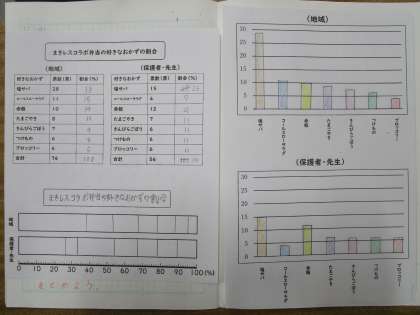 まきレスコラボ弁当の好きなおかずの割合
(地域)
(保護者・先生)
好きなおかず 票数(票) 割合(%)
塩サバ 28
コールスローサラダ 11
赤飯 10
たまごやき 8
きんぴらごぼう 7
つけもの 6
ブロッコリー
合計 74 100
好きなおかず 票数(票) 割合(%)
塩サバ 15
コールスローサラダ 4 7
赤飯 12
たまごやき 7
きんぴらごぼう 6 11
つけもの 6 11
ブロッコリー 6 11
合計 56
まきレスコラボ弁当の好きなおかずの割合
地域
保護者・先生
0 10 20 30 40 50 60 70 80 90 100(%)
(地域)
30
25
20
15
10
5
0
塩サバ
コールスローサラダ
赤飯
たまごやき
きんぴらごぼう
つけもの
ブロッコリー
(保護者・先生)
30
25
20
15
10
5
0
塩サバ
コールスローサラダ
赤飯
たまごやき
きんぴらごぼう
つけもの
ブロッコリー